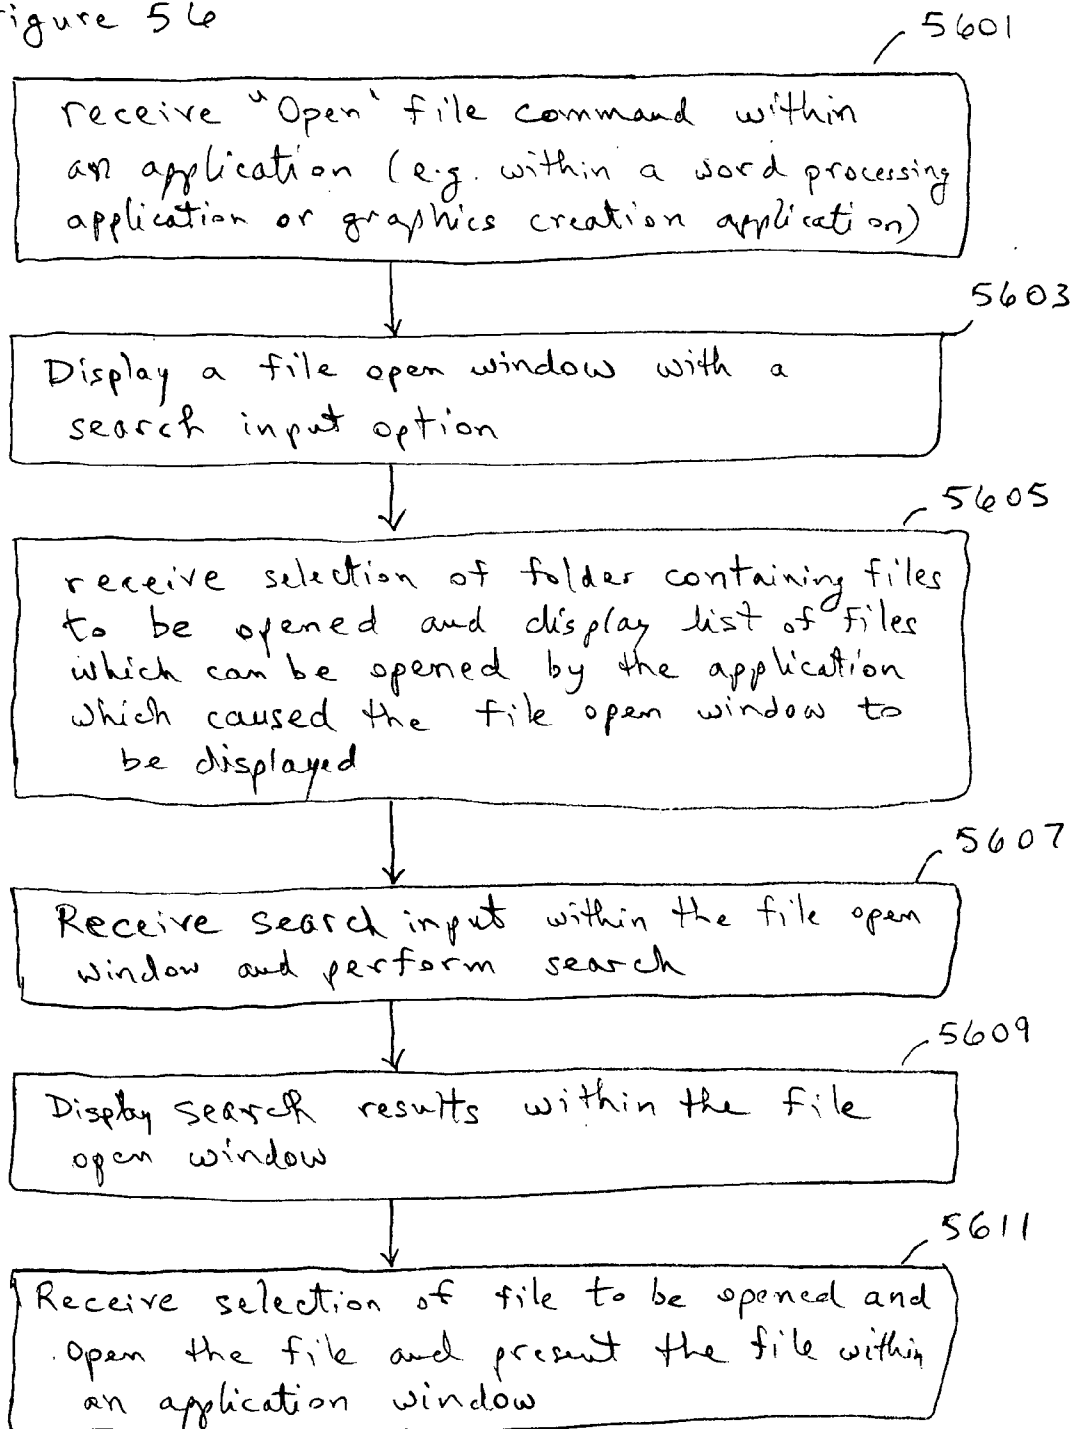 igure 56
5601
receive "Open" file command within
an application (e.g. within a word processing
application or graphics creation application)
5603
Display a file open window with a
search input option
5605
receive selection of folder containing files
to be opened and display list of files
which can be opened by the application
which caused the file open window to
be displayed
5607
Receive search input within the file open
window and perform search
5609
Display search results within the file
open window
5611
Receive selection of file to be opened and
open the file and present the file within
an application window